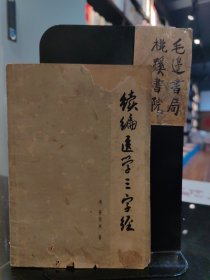 毛边书局
桃蹊书院
续编医学三字经